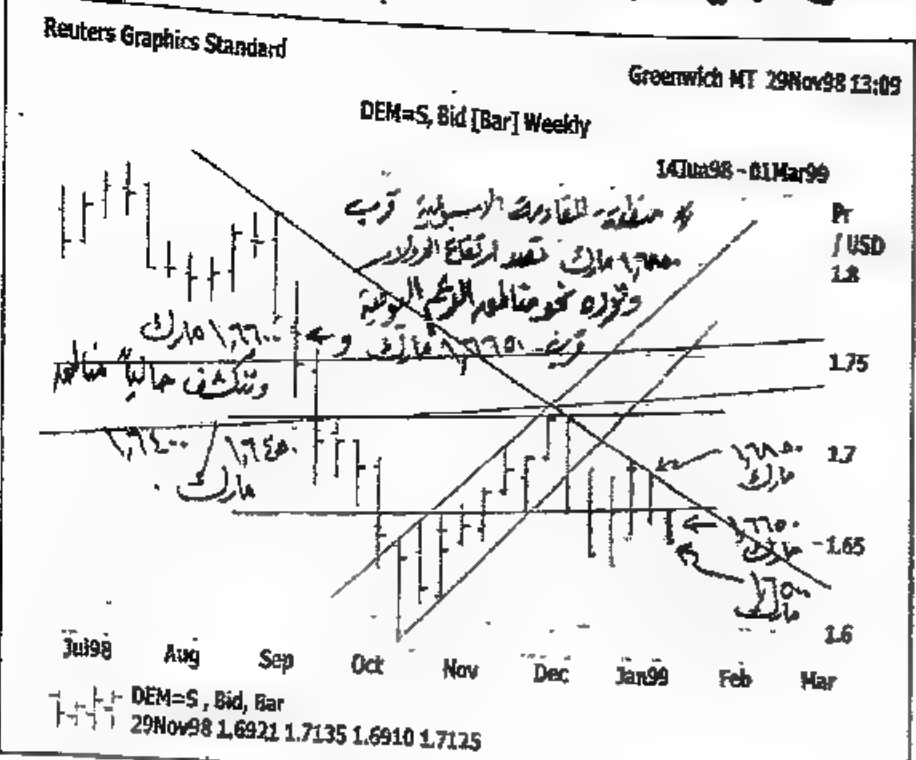 Reuters Graphics Standard
Greenwich MT 29Nov98 13:09
DEM=S, Bid [Bar] Weekly
14Jun98 - 01Mar99
Pr
/ USD
منطقة المقاومة الاسبوعية قرب
١,٦٨٥٠ مارك تصد ارتفاع الدولار
وترده نحو مناطق الدعم
قرب ١,٦٦٥٠ مارك و ١,٦٦٠٠ مارك
وتكشف حالياً مناطق
١,٦٤٥٠ ١,٦٤٠٠
مارك
1.8
1.75
1.7
1.65
1.6
١,٦٨٥٠
مارك
١,٦٦٥٠
مارك
١,٦٥٠٠
مارك
Jul98 Aug Sep Oct Nov Dec Jan99 Feb Mar
DEM=S , Bid, Bar
29Nov98 1.6921 1.7135 1.6910 1.7125